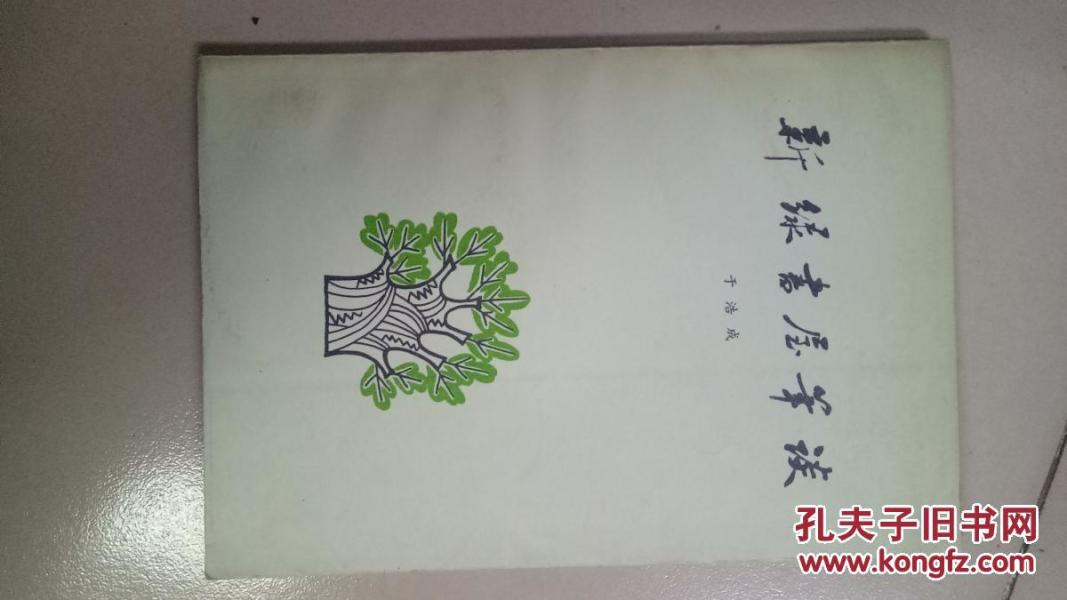 新绿书屋笔谈
于浩成
孔夫子旧书网
www.kongfz.com